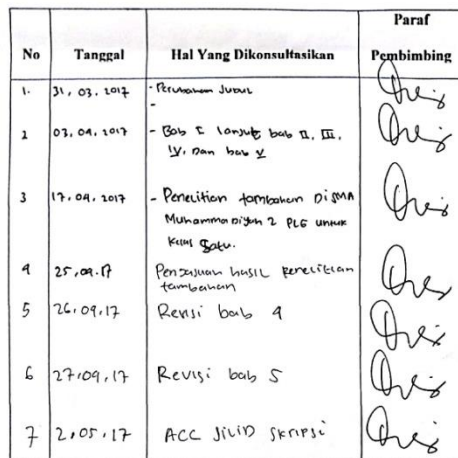 Paraf
No Tanggal Hal Yang Dikonsultasikan Pembimbing
1. 31.03.2017 - Perubahan Judul
-
2 03.04.2017 - Bab I lanjut bab II, III,
IV, Dan bab V
3 17.04.2017 - Penelitian tambahan DiSMA
Muhammadiyah 2 PLG untuk
Kelas Satu.
4 25.04.17 Pengajuan hasil penelitian
tambahan
5 26.04.17 Revisi bab 4
6 27.04.17 Revisi bab 5
7 2.05.17 ACC JILID SKRIPSI